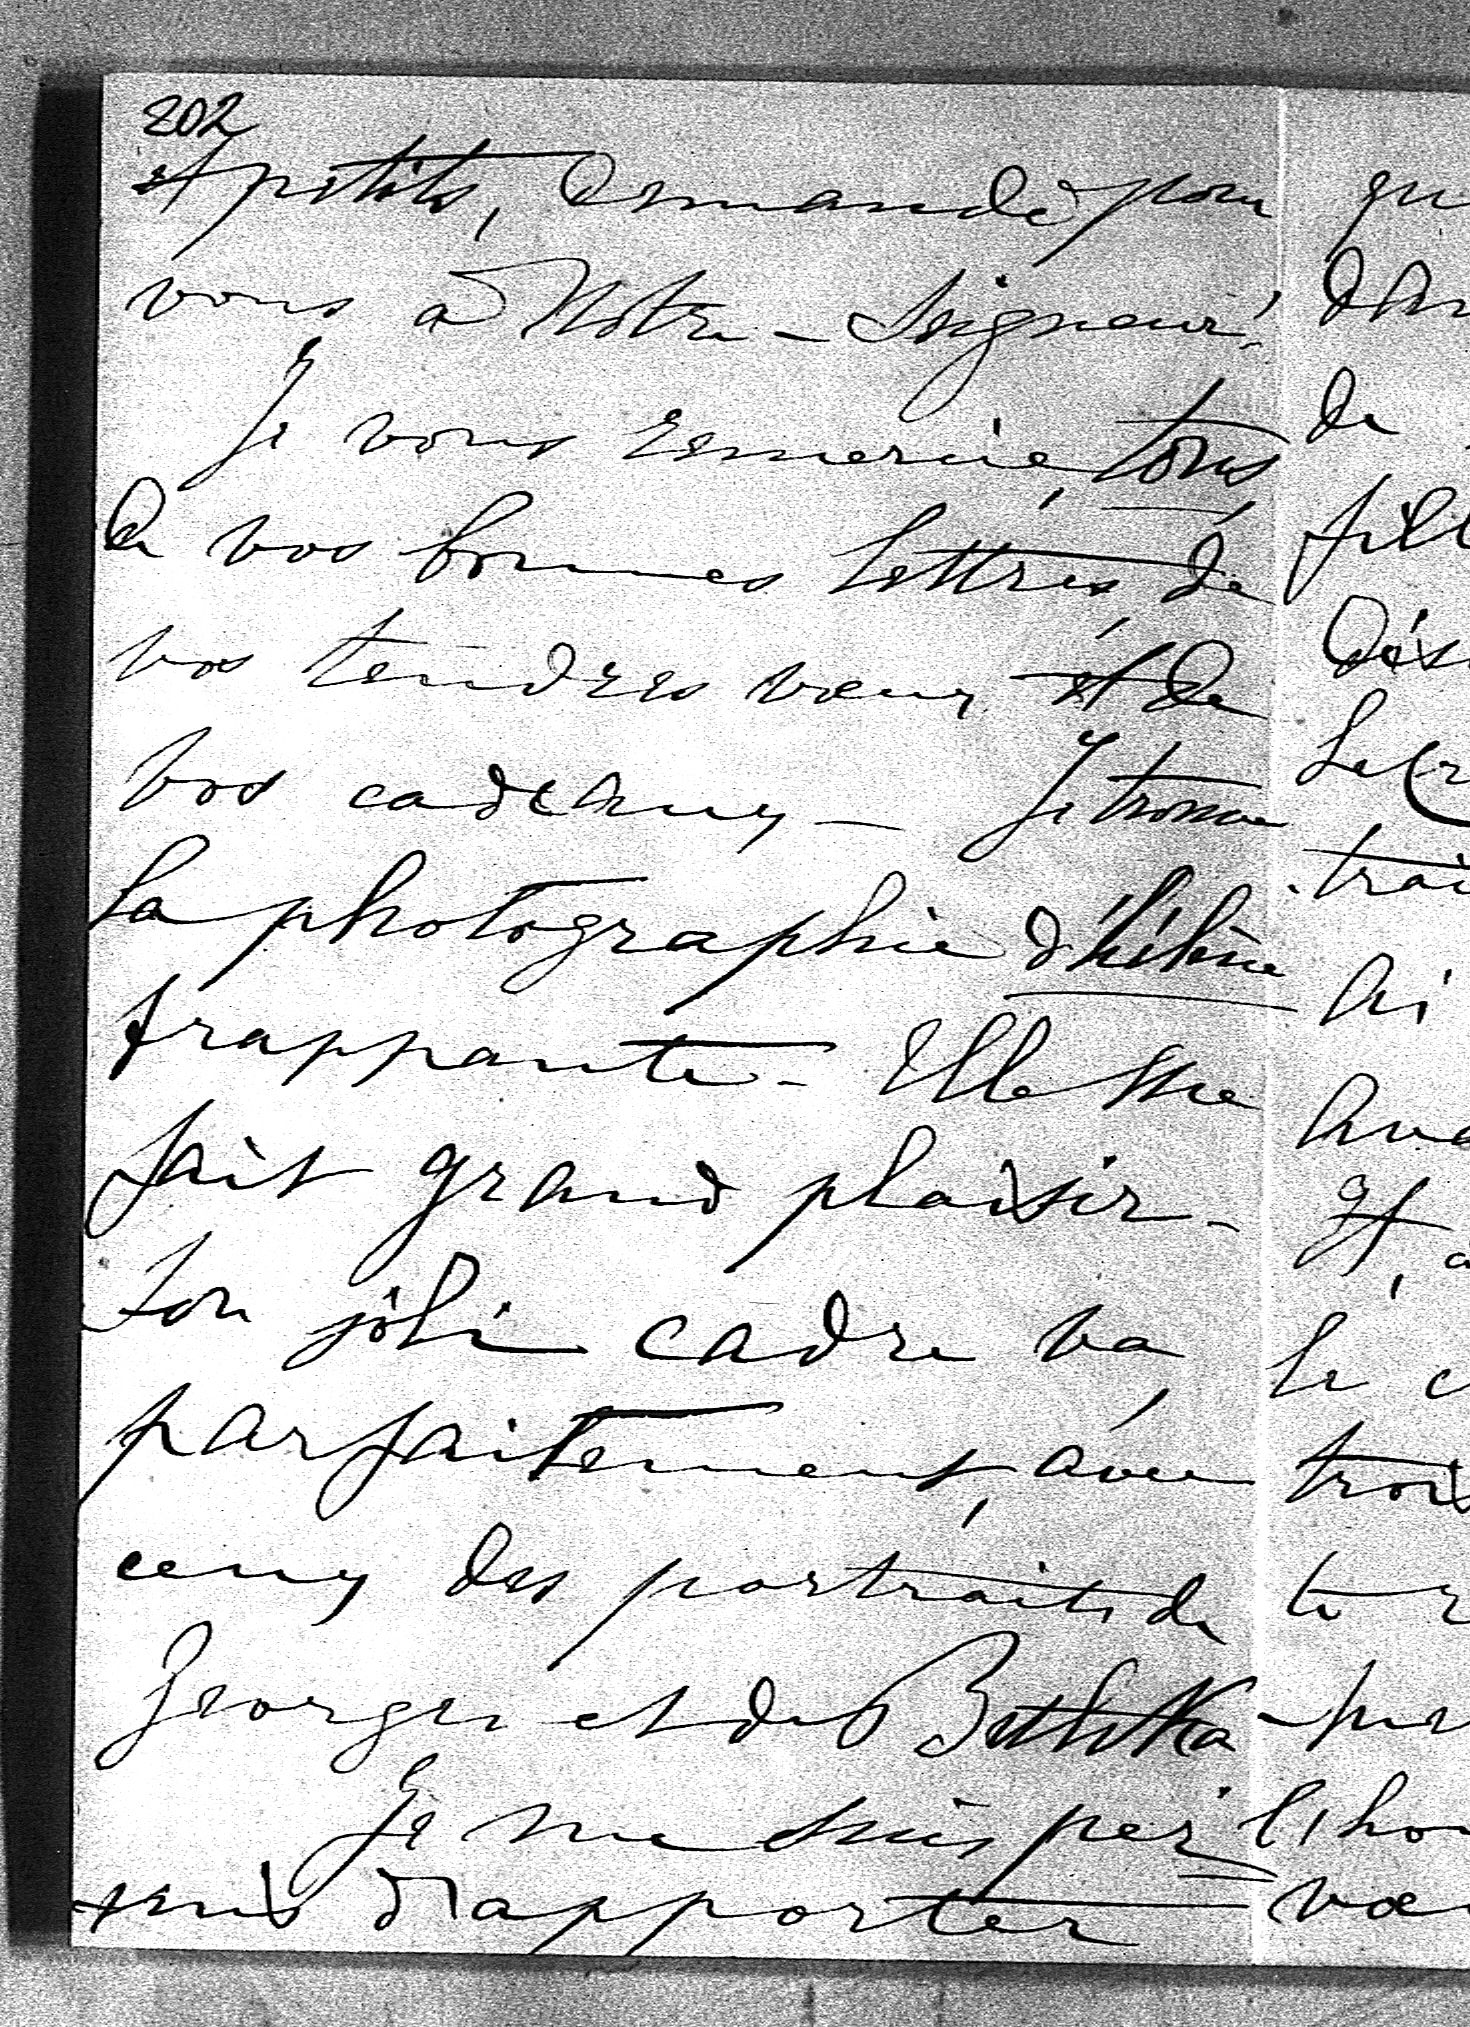 202
et petits, demandé pour
vous à Notre-Seigneur!
Je vous remercie, tous,
de vos bonnes lettres, de
vos tendres vœux et de
vos cadeaux — Je trouve
la photographie d'hélène
frappante - Elle me
fait grand plaisir -
Son joli cadre va,
parfaitement, avec
ceux des portraits de
Georges et de
Je me suis per
mis d'apporter
qu
de
fill
trai
ai
et, a
le c
trois
te
vœ